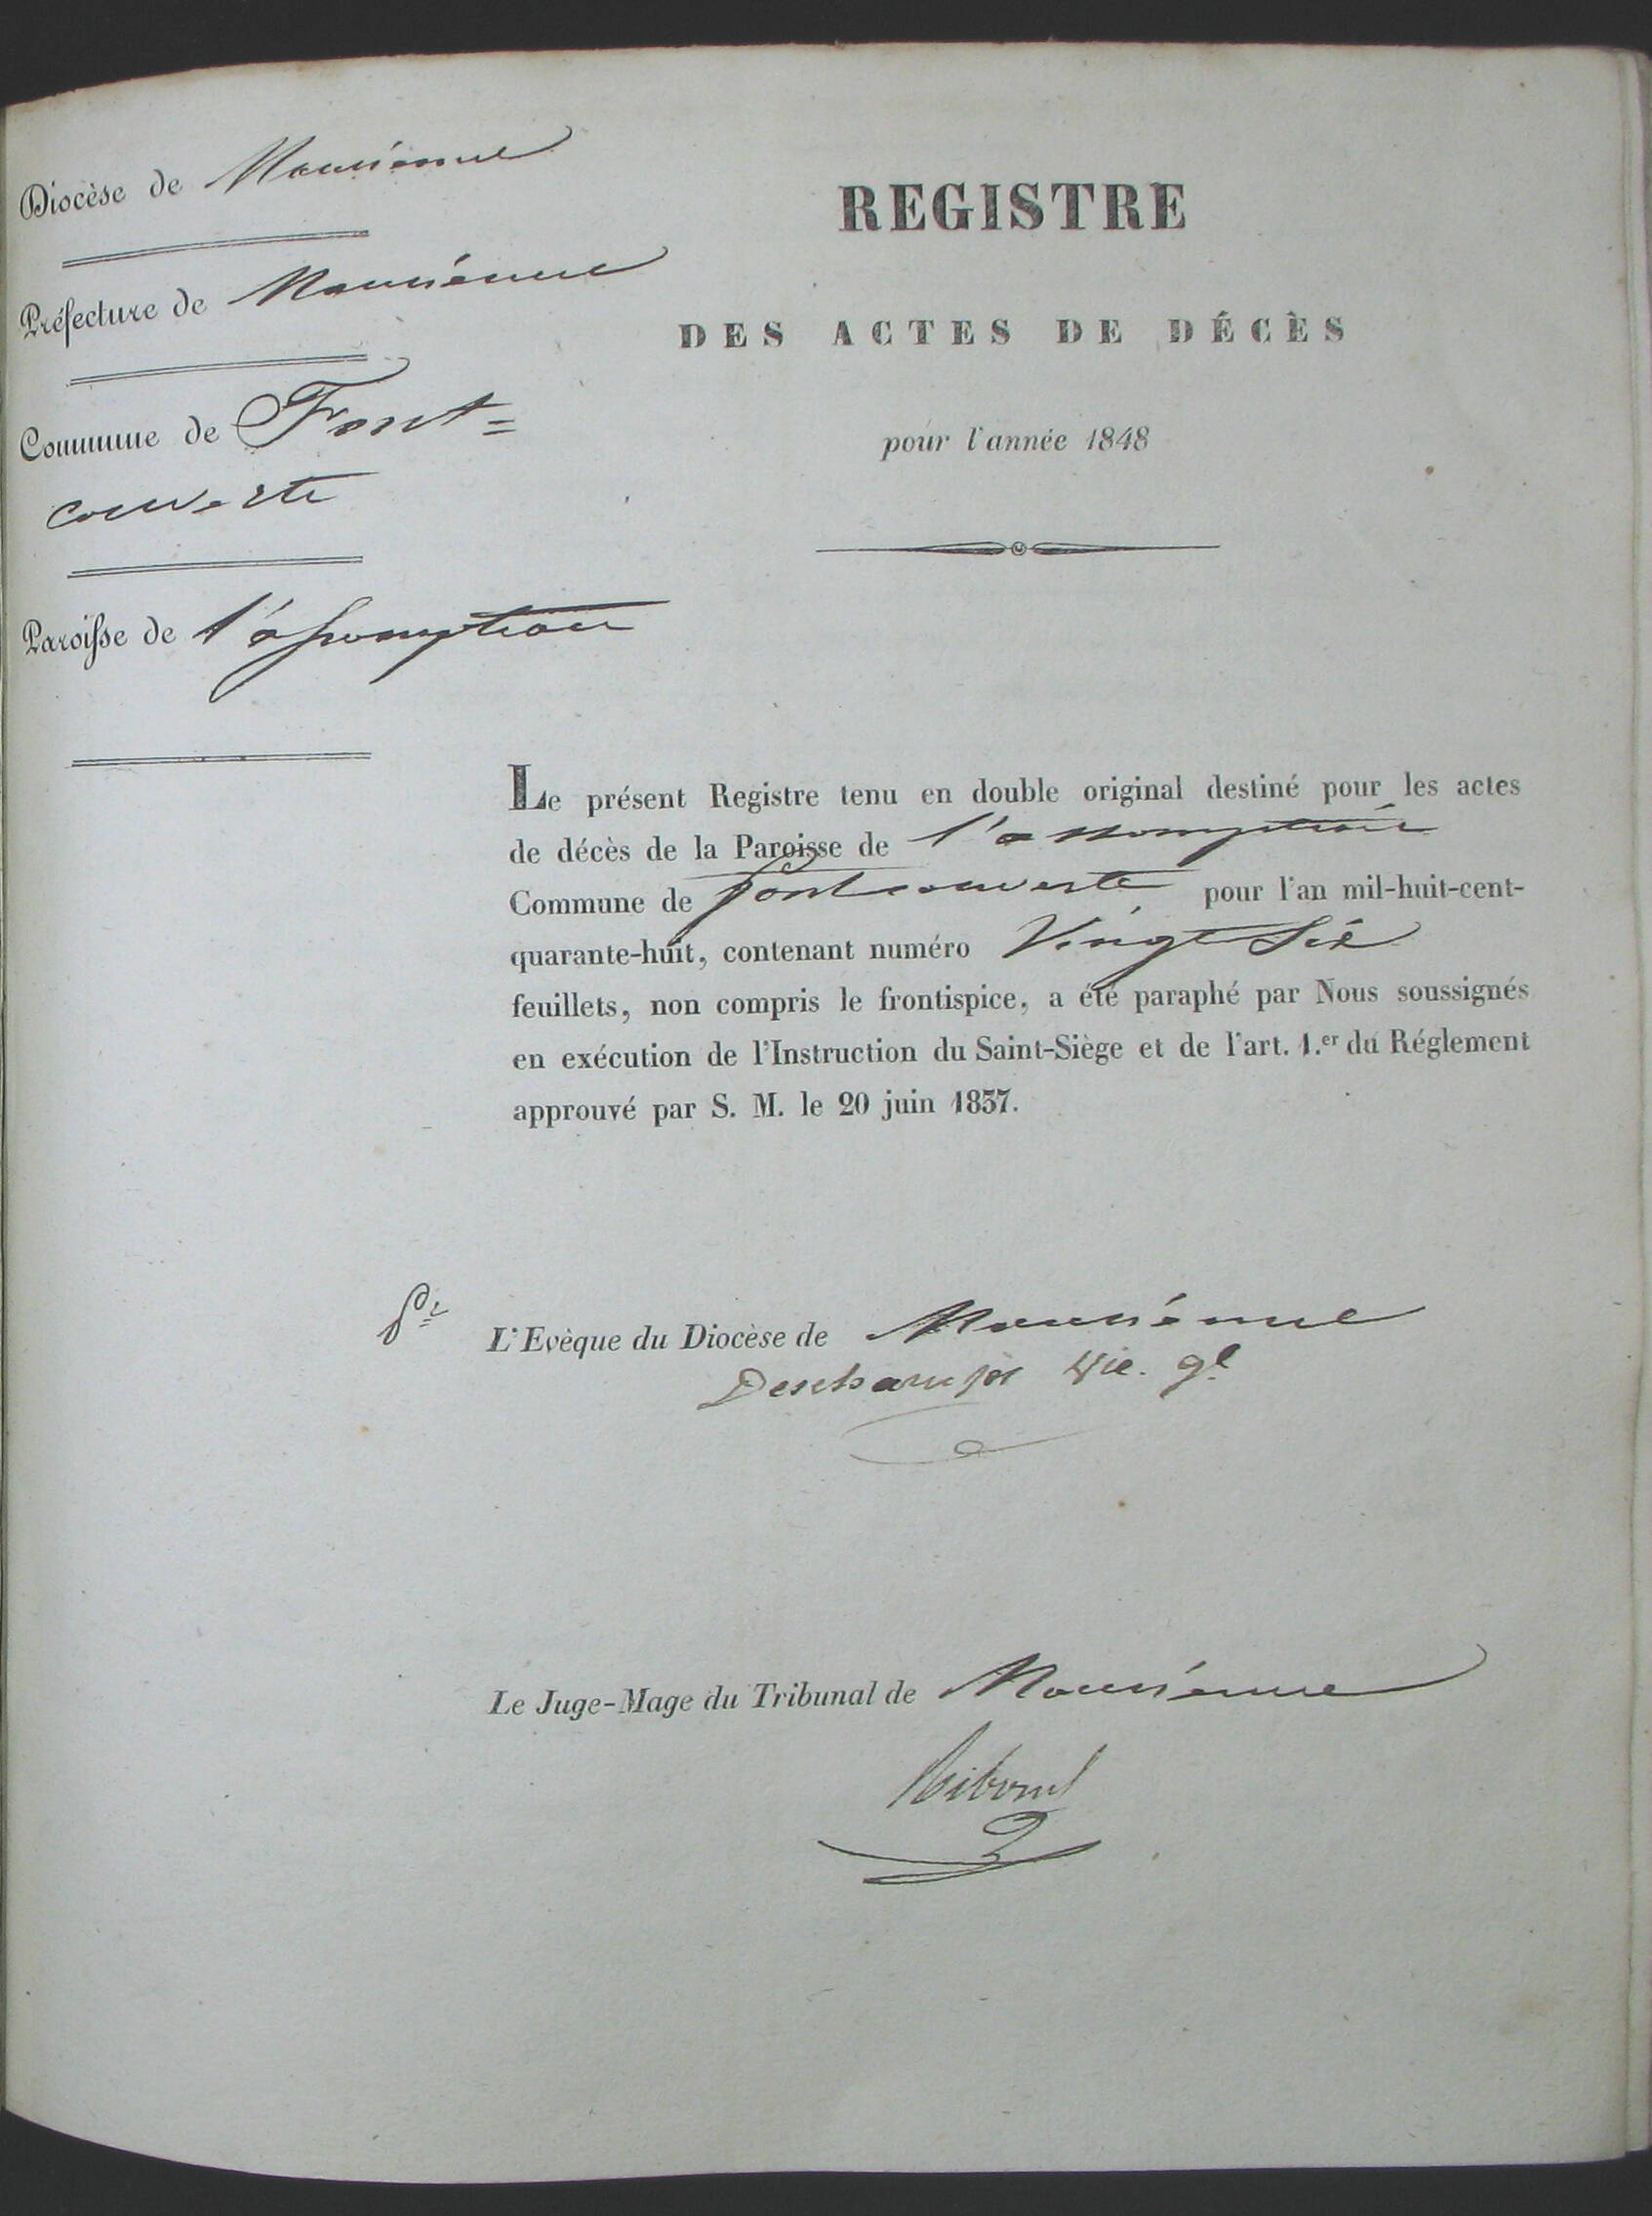 Diocèse de Maurienne
Préfecture de Maurienne
Commune de Font=
couverte
Paroisse de l'assomption
REGISTRE
DES ACTES DE DÉCÈS
pour l'année 1848
Le présent Registre tenu en double original destiné pour les actes
de décès de la Paroisse de l'assomption
Commune de fontcouverte pour l'an mil-huit-cent-
quarante-huit, contenant numéro Vingt Six
feuillets, non compris le frontispice, a été paraphé par Nous soussignés
en exécution de l'Instruction du Saint-Siège et de l'art. 1.er du Réglement
approuvé par S. M. le 20 juin 1837.
Pr L'Evèque du Diocèse de Maurienne
Deschamps Vic. gl
Le Juge-Mage du Tribunal de Maurienne